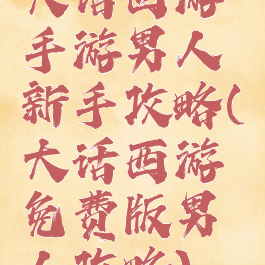 大话西游
手游男人
新手攻略(
大话西游
免费版男
人攻略)